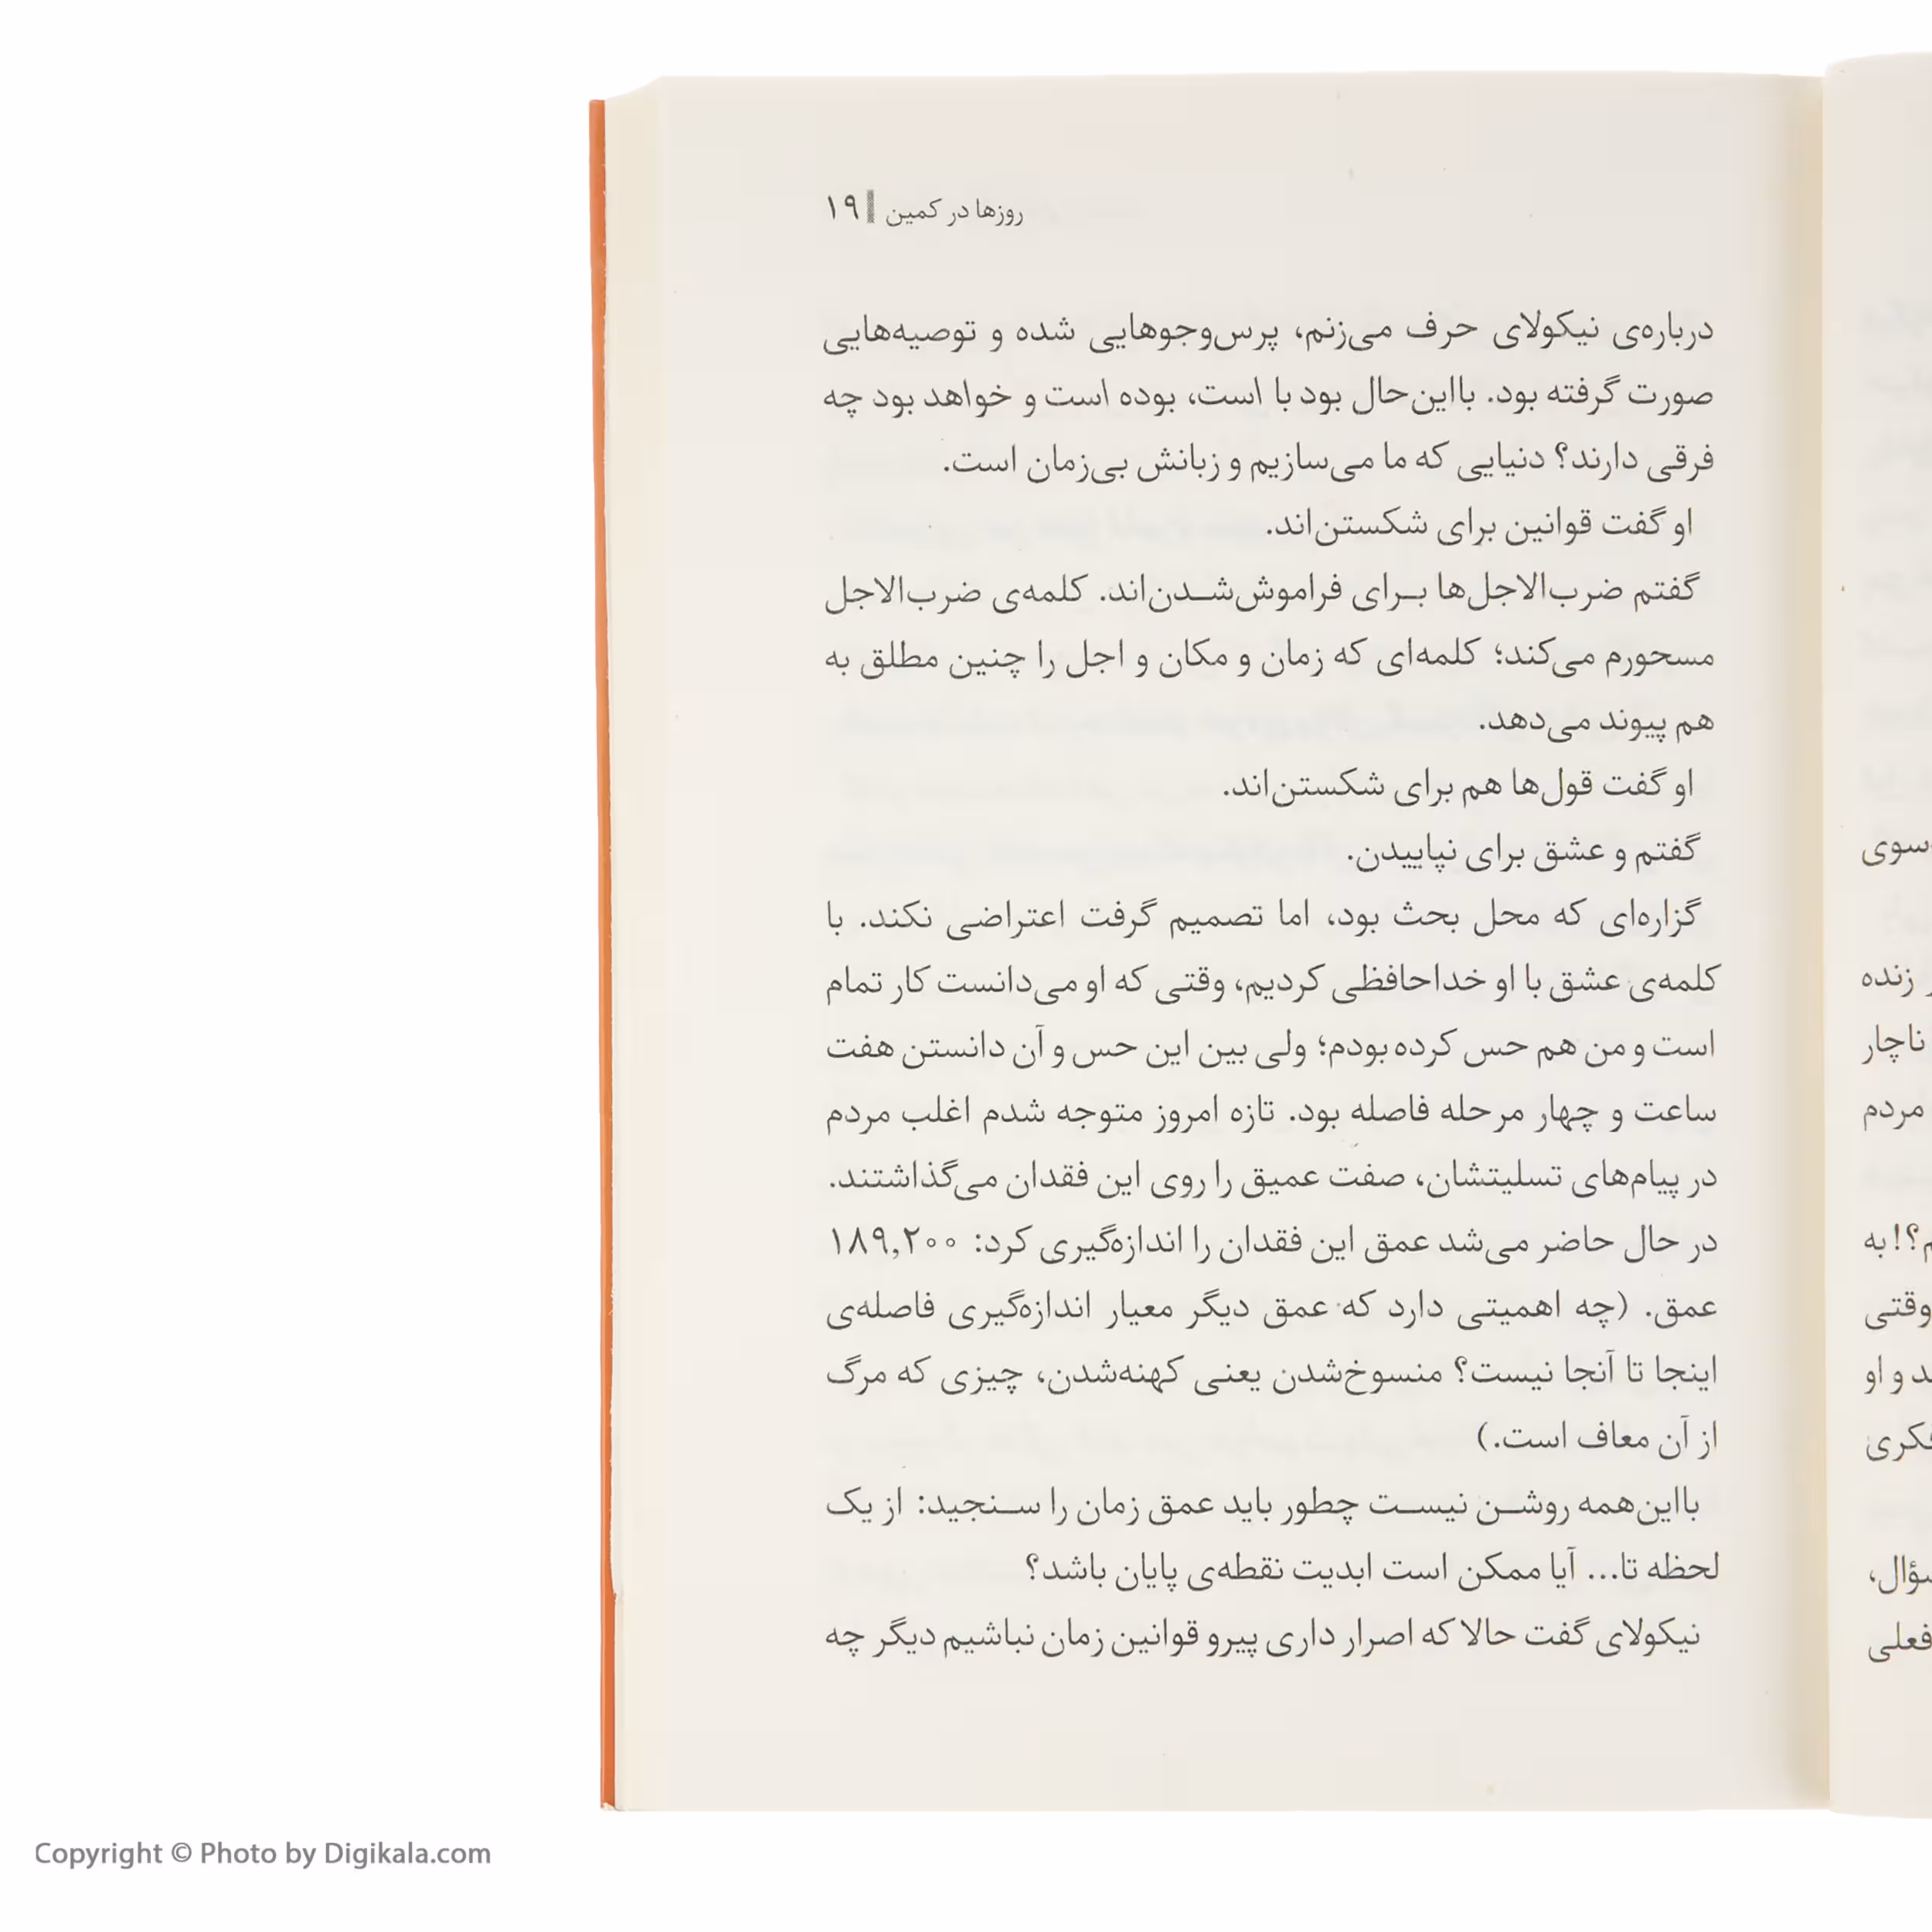 روزها در کمین ‖ ۱۹
درباره‌ی نیکولای حرف می‌زنم، پرس‌وجوهایی شده و توصیه‌هایی
صورت گرفته بود. بااین‌حال بود با است، بوده است و خواهد بود چه
فرقی دارند؟ دنیایی که ما می‌سازیم و زبانش بی‌زمان است.
او گفت قوانین برای شکستن‌اند.
گفتم ضرب‌الاجل‌ها بـرای فراموش‌شـدن‌اند. کلمه‌ی ضرب‌الاجل
مسحورم می‌کند؛ کلمه‌ای که زمان و مکان و اجل را چنین مطلق به
هم پیوند می‌دهد.
او گفت قول‌ها هم برای شکستن‌اند.
گفتم و عشق برای نپاییدن.
گزاره‌ای که محل بحث بود، اما تصمیم گرفت اعتراضی نکند. با
کلمه‌ی عشق با او خداحافظی کردیم، وقتی که او می‌دانست کار تمام
است و من هم حس کرده بودم؛ ولی بین این حس و آن دانستن هفت
ساعت و چهار مرحله فاصله بود. تازه امروز متوجه شدم اغلب مردم
در پیام‌های تسلیتشان، صفت عمیق را روی این فقدان می‌گذاشتند.
در حال حاضر می‌شد عمق این فقدان را اندازه‌گیری کرد: ۱۸۹,۲۰۰
عمق. (چه اهمیتی دارد که عمق دیگر معیار اندازه‌گیری فاصله‌ی
اینجا تا آنجا نیست؟ منسوخ‌شدن یعنی کهنه‌شدن، چیزی که مرگ
از آن معاف است.)
بااین‌همه روشـن نیسـت چطور باید عمق زمان را سـنجید: از یک
لحظه تا... آیا ممکن است ابدیت نقطه‌ی پایان باشد؟
نیکولای گفت حالا که اصرار داری پیرو قوانین زمان نباشیم دیگر چه
زنده
ناچار
مردم
به
وقتی
و او
فعلی
Copyright © Photo by Digikala.com